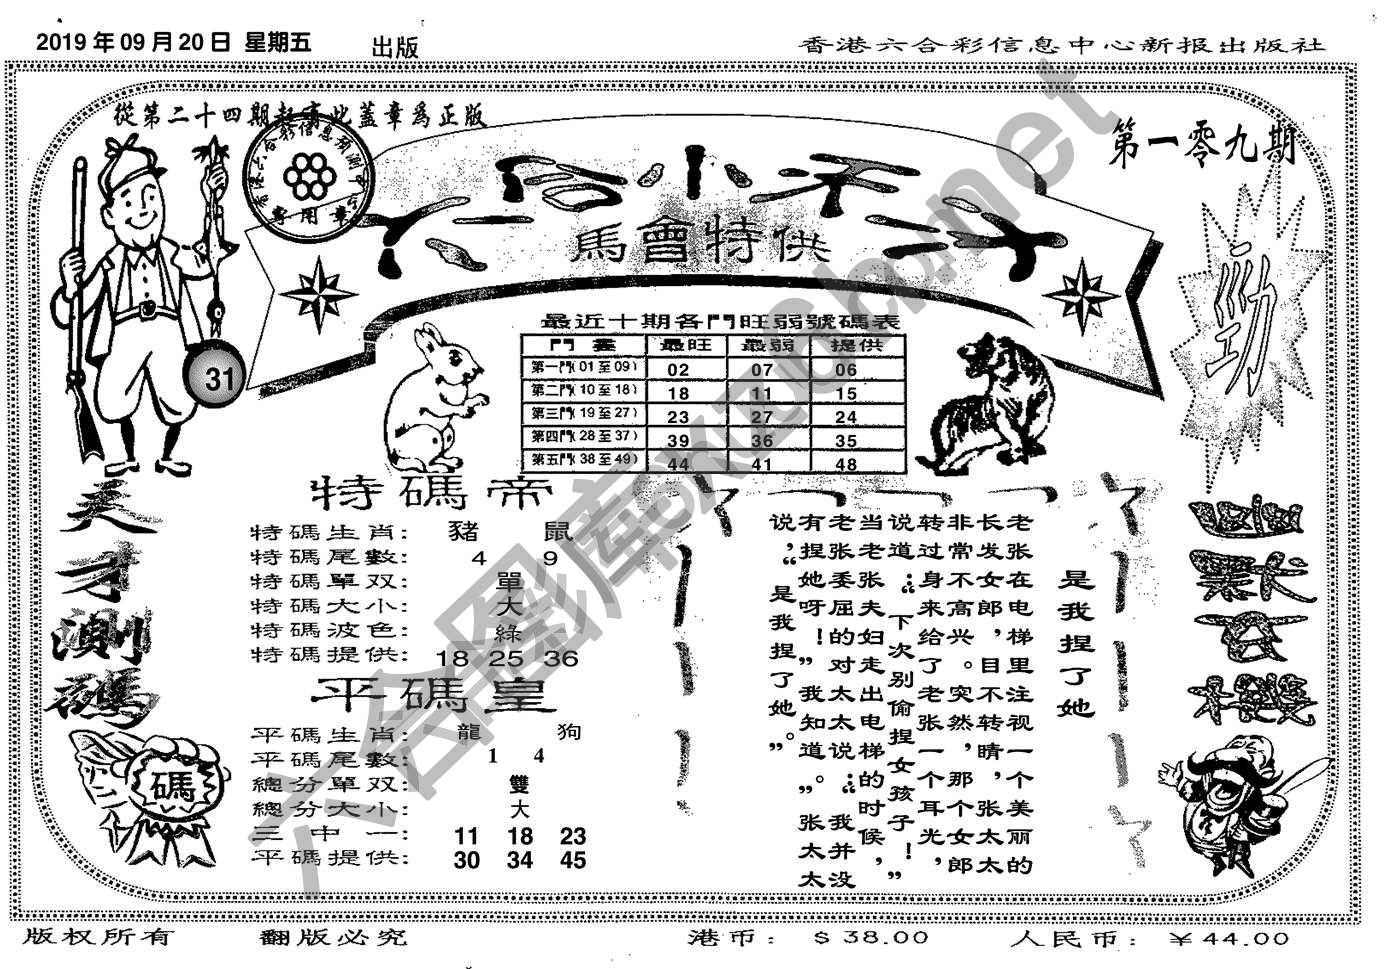 2019年09月20日 星期五
出版
香港六合彩信息中心新报出版社
從第二十四期起寄此蓋章爲正版
專用章
第一零九期
六合小天才
馬會特供
勁
31
最近十期各門旺弱號碼表
門數 最旺 最弱 提供
第一門(01至09) 02 07 06
第二門(10至18) 18 11 15
第三門(19至27) 23 27 24
第四門(28至37) 39 36 35
第五門(38至49) 44 41 48
天才測碼
碼
特碼帝
特碼生肖: 豬 鼠
特碼尾數: 4 9
特碼單双: 單
特碼大小: 大
特碼波色: 綠
特碼提供: 18 25 36
平碼皇
平碼生肖: 龍 狗
平碼尾數: 1 4
總分單双: 雙
總分大小: 大
三中一: 11 18 23
平碼提供: 30 34 45
是我捏了她
老张在电梯里注视一个美丽的
长发女郎，目不转睛，张太太
非常不高兴。突然，那个女郎
转过身来给了老张一个耳光，
说道：“下次别偷捏女孩子！”
当老张夫妇走出电梯的时候，
老张委屈的对太太说：“我并没
有捏她呀！”“我知道。”张太太
说，“是我捏了她。”
六合图库 ckzcb.net
版权所有
翻版必究
港币: $38.00
人民币: ￥44.00